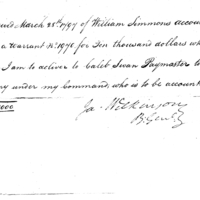 March 28th 1797 of William Simmons accoun
a Warrant No 1070 for Ten thousand dollars wh
I am to deliver to Caleb Swan Paymaster to
my under my Command, who is to be account
000
Ja Wilkinson
B. Genl